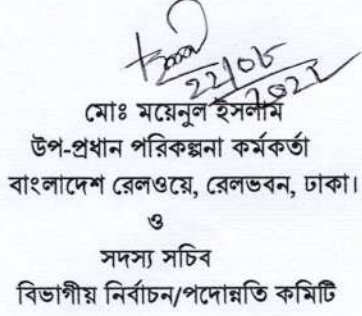 22/06
2022
মোঃ ময়েনুল ইসলাম
উপ-প্রধান পরিকল্পনা কর্মকর্তা
বাংলাদেশ রেলওয়ে, রেলভবন, ঢাকা।
ও
সদস্য সচিব
বিভাগীয় নির্বাচন/পদোন্নতি কমিটি